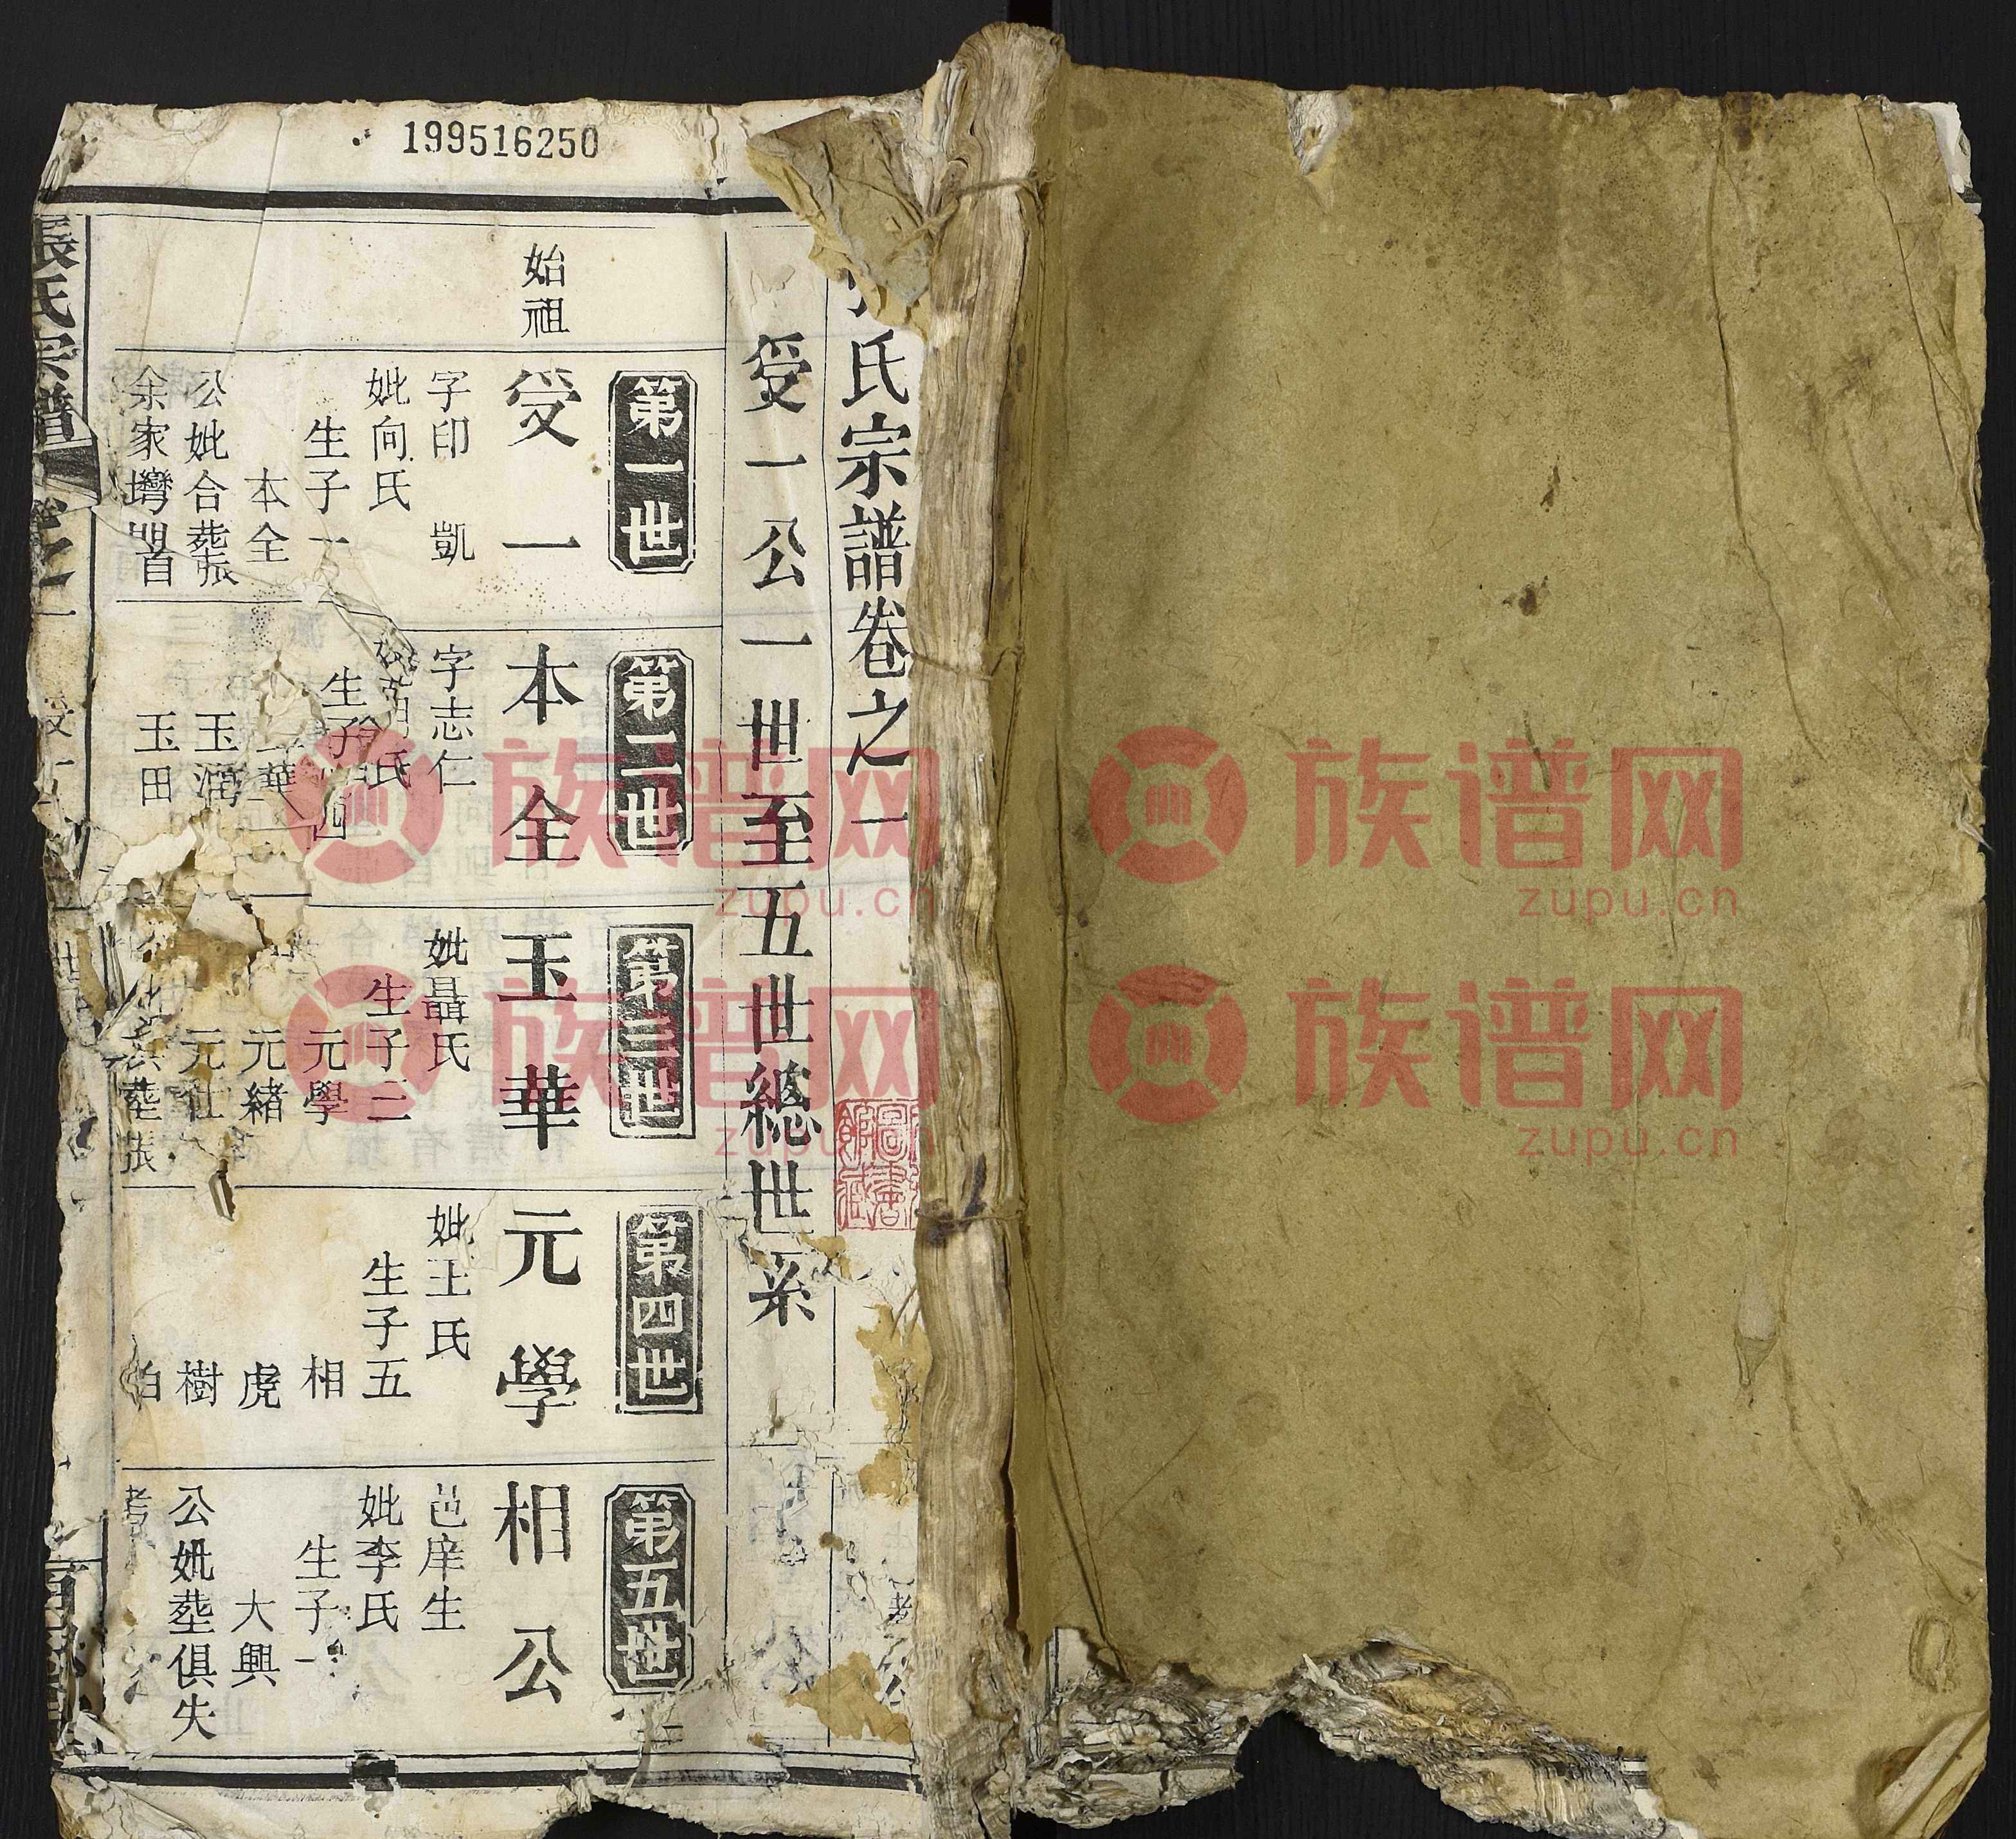 199516250
氏宗譜卷之一
受一公一世至五世總世系
始祖
第一世
受一
字印凱
妣向氏
生子一
本全
公妣合葬張
余家塆
第二世
本全
字志仁
氏
生子四
華
玉潤
玉田
第三世
玉華
妣聶氏
生子三
元學
元緒
元仕
葬張
第四世
元學
妣王氏
生子五
相
虎
樹
柏
第五世
相公
邑庠生
妣李氏
生子一
大興
公妣葬俱失
考
張氏宗譜
族谱网
zupu.cn
族谱网
zupu.cn
族谱网
zupu.cn
族谱网
zupu.cn